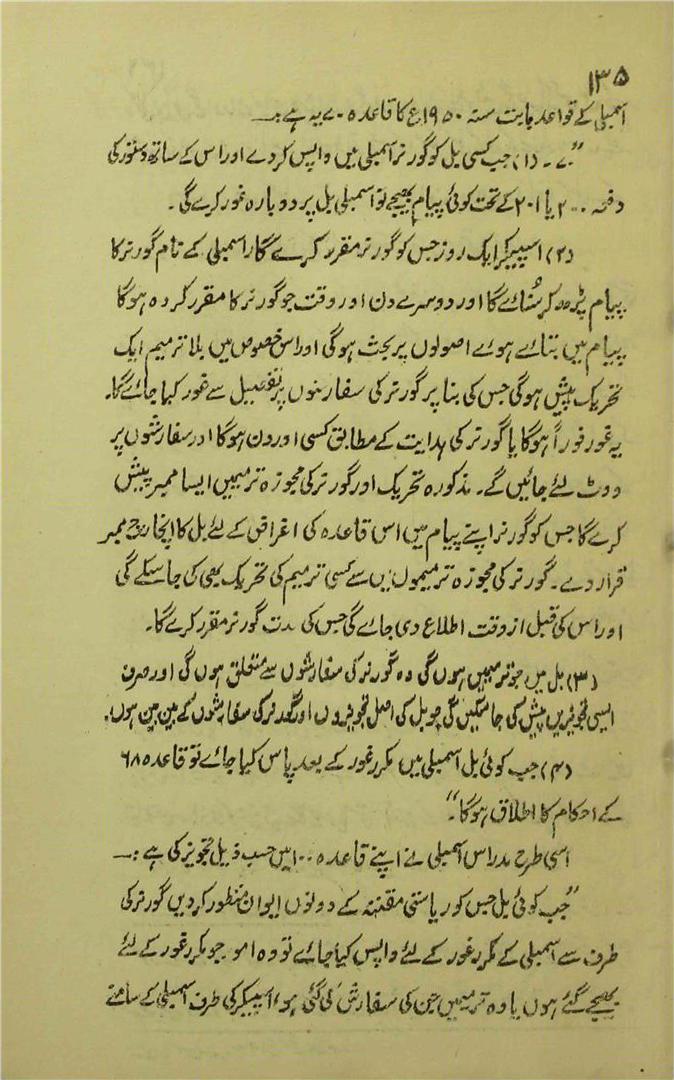 ۱۳۵
اسمبلی کے قواعد بابت سنہ ۱۹۵۰ع کا قاعدہ ۷۰ یہ ہے :۔
”۷۰۔ (۱) جب کسی بل کو گورنر اسمبلی میں واپس کردے اور اس کے ساتھ دستور کی
دفعہ ۲۰۰ یا ۲۰۱ کے تحت کوئی پیام بھیجے تو اسمبلی بل پر دوبارہ غور کرے گی ۔
(۲) اسپیکر ایک روز جس کو گورنر مقرر کرے گا، اسمبلی کے نام گورنر کا
پیام پڑھ کر سُنائے گا اور دوسرے دن اور وقت جو گورنر کا مقرر کردہ ہوگا
پیام میں بتائے ہوئے اصولوں پر بحث ہوگی اور اس خصوص میں بلا ترمیم ایک
تحریک پیش ہوگی جس کی بنا پر گورنر کی سفارشوں پر تفصیل سے غور کیا جائے گا۔
یہ غور فوراً ہوگا یا گورنر کی ہدایت کے مطابق کسی اور دن ہوگا اور سفارشوں پر
ووٹ لئے جائیں گے۔ مذکورہ تحریک اور گورنر کی مجوزہ ترمیمیں ایسا ممبر پیش
کرے گا جس کو گورنر اپنے پیام میں اس قاعدہ کی اغراض کے لئے بل کا انچارج ممبر
قرار دے۔ گورنر کی مجوزہ ترمیموں میں سے کسی ترمیم کی تحریک بھی کی جاسکے گی
اور اس کی قبل از وقت اطلاع دی جائے گی جس کی مدت گورنر مقرر کرے گا۔
(۳) بل میں جو ترمیمیں ہوں گی وہ گورنر کی سفارشوں سے متعلق ہوں گی اور صرف
ایسی تجویزیں پیش کی جاسکیں گی جو بل کی اصل تجویزوں اور گورنر کی سفارشوں کے بین بین ہوں۔
(۴) جب کوئی بل اسمبلی میں مکرر غور کے بعد پاس کیا جائے تو قاعدہ ۶۸
کے احکام کا اطلاق ہوگا“۔
اسی طرح مدراس اسمبلی نے اپنے قاعدہ ۱۰۰ میں حسب ذیل تجویز کی ہے :۔
”جب کوئی بل جس کو ریاستی مقننہ کے دونوں ایوان منظور کردیں گورنر کی
طرف سے اسمبلی کے مکرر غور کے لئے واپس کیا جائے تو وہ امور جو مکرر غور کے لئے
بھیجے گئے ہوں یا وہ ترمیمیں جن کی سفارش کی گئی ہو، اسپیکر کی طرف اسمبلی کے سامنے